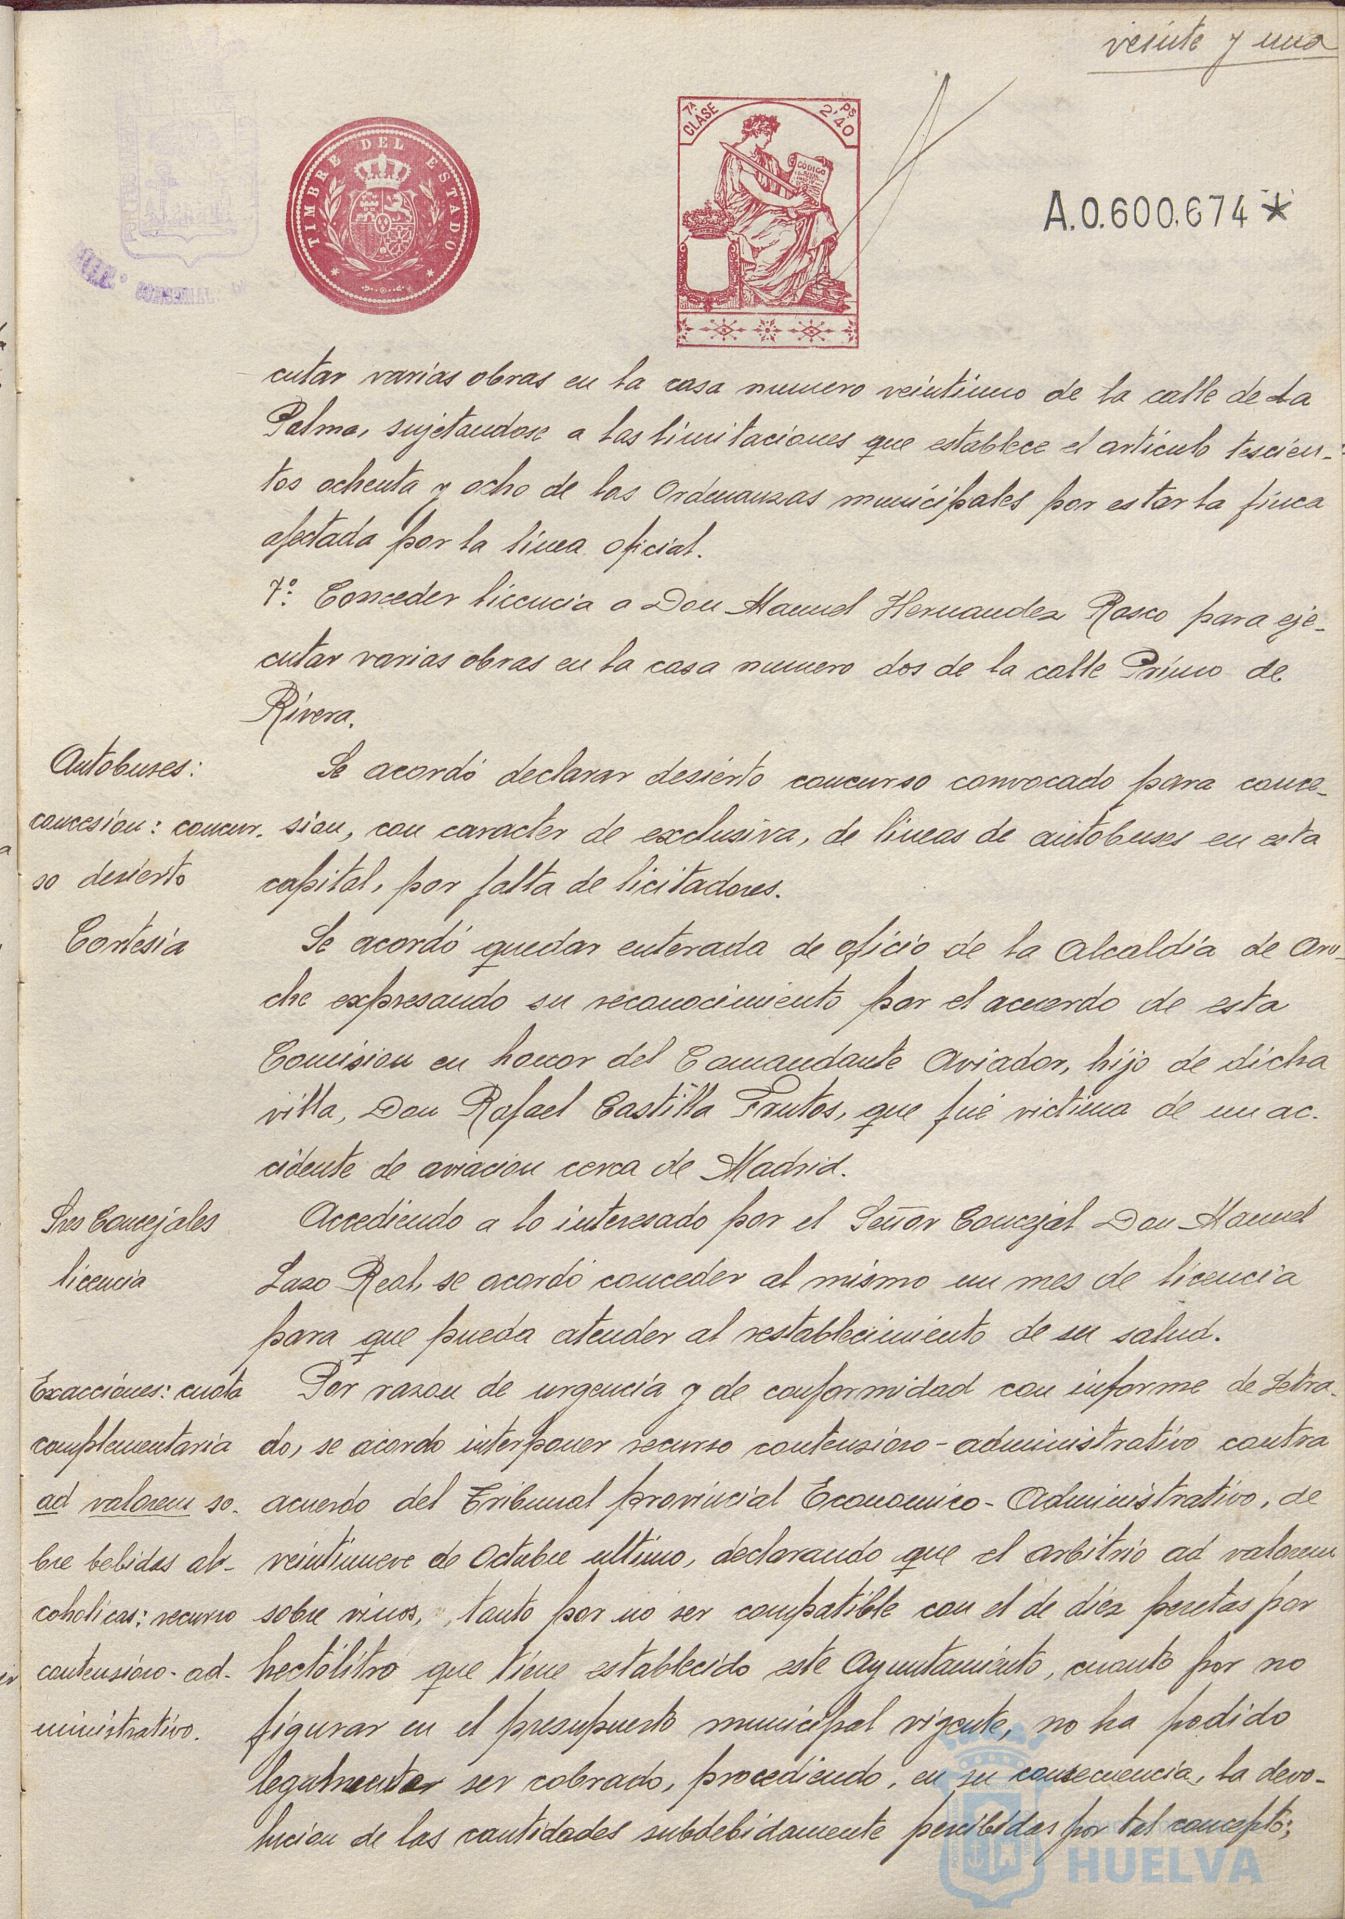 veinte y una
TIMBRE DEL ESTADO
7ª CLASE
Ps 2'40
CODIGO
A.0.600.674*
cutar varias obras en la casa numero veintiuno de la calle de La
Palma, sujetandose a las limitaciones que establece el articulo tescien-
tos ochenta y ocho de las Ordenanzas municipales por estar la finca
afectada por la linea oficial.
7º: Conceder licencia a Don Manuel Hernandez Rosco para eje-
cutar varias obras en la casa numero dos de la calle Primo de
Rivera.
Autobuses:
concesion: concur-
so desierto
Se acordó declarar desierto concurso convocado para conce-
sion, con caracter de exclusiva, de lineas de autobuses en esta
capital, por falta de licitadores.
Cortesia
Se acordó quedar enterada de oficio de la Alcaldía de Aro-
che expresando su reconocimiento por el acuerdo de esta
Comision en honor del Comandante Aviador, hijo de dicha
villa, Don Rafael Castilla Frutos, que fué victima de un ac-
cidente de aviacion cerca de Madrid.
Sres Concejales
licencia
Accediendo a lo interesado por el Señor Concejal Don Manuel
Lazo Real, se acordó conceder al mismo un mes de licencia
para que pueda atender al restablecimiento de su salud.
Exacciones: cuota
complementaria
ad valorem so-
bre bebidas al-
coholicas: recurso
contensioso-ad-
ministrativo.
Por razon de urgencia y de conformidad con informe de Letra-
do, se acordo interponer recurso contensioso-administrativo contra
acuerdo del Tribunal provincial Economico-Administrativo, de
veintinueve de Octubre ultimo, declarando que el arbitrio ad valorem
sobre vinos, tanto por no ser compatible con el de diez pesetas por
hectólitro que tiene establecido este Ayuntamiento, cuanto por no
figurar en el presupuesto municipal vigente, no ha podido
legalmente ser cobrado, procediendo, en su consecuencia, la devo-
lucion de las cantidades subdebidamente percibidas por tal concepto;
HUELVA